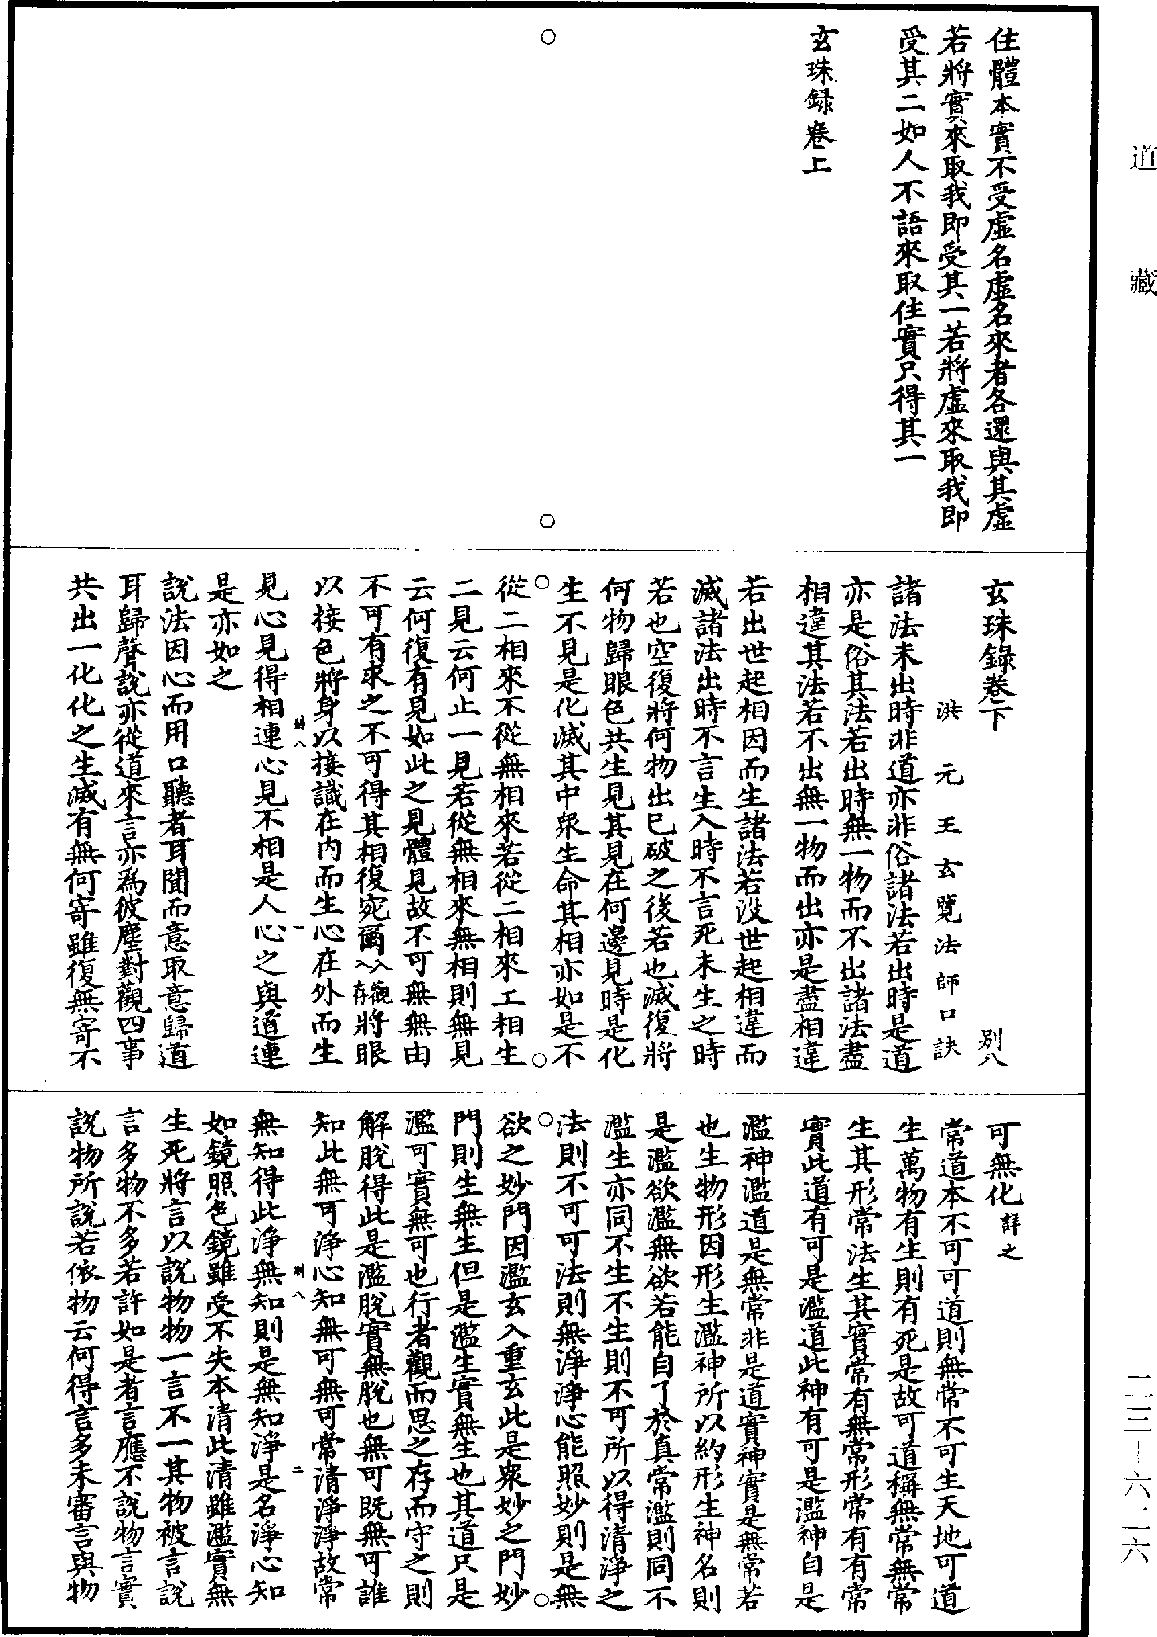 道藏
住體本實不受虛名虛名來者各還與其虛
若將實來取我即受其一若將虛來取我即
受其二如人不語來取住實只得其一
玄珠録卷上
玄珠錄卷下
別八
洪元王玄覽法師口訣
諸法未出時非道亦非俗諸法若出時是道
亦是俗其法若出時無一物而不出諸法盡
相違其法若不出無一物而出亦是盡相違
若出世起相因而生諸法若沒世起相違而
滅諸法出時不言生入時不言死未生之時
若也空復將何物出已破之後若也滅復將
何物歸眼色共生見其見在何邊見時是化
生不見是化滅其中衆生命其相亦如是不
從二相來不從無相來若從二相來工相生
二見云何止一見若從無相來無相則無見
云何復有見如此之見體見故不可無無由
不可有求之不可得其相復宛爾入觀入存將眼
以接色將身以接識在內而生心在外而生
別八
一
見心見得相連心見不相是人心之與道連
是亦如之
說法因心而用口聽者耳聞而意取意歸道
耳歸聲說亦從道來言亦為彼塵對觀四事
共出一化化之生滅有無何寄雖復無寄不
可無化詳之
常道本不可可道則無常不可生天地可道
生萬物有生則有死是故可道稱無常無常
生其形常法生其實常有無常形常有有常
實此道有可是濫道此神有可是濫神自是
濫神濫道是無常非是道實神實是無常若
也生物形因形生濫神所以約形生神名則
是濫欲濫無欲若能自了於真常濫則同不
濫生亦同不生不生則不可所以得清淨之
法則不可可法則無淨淨心能照妙則是無
欲之妙門因濫玄入重玄此是衆妙之門妙
門則生無生但是濫生實無生也其道只是
濫可實無可也行者觀而思之存而守之則
解脫得此是濫脫實無脫也無可既無可誰
知此無可淨心知無可無可常清淨淨故常
別八
二
無知得此淨無知則是無知淨是名淨心知
如鏡照色鏡雖受不失本清此清雖濫實無
生死將言以說物物一言不一其物被言說
言多物不多若許如是者言應不說物言實
說物所說若依物云何得言多未審言與物
二三—六二六